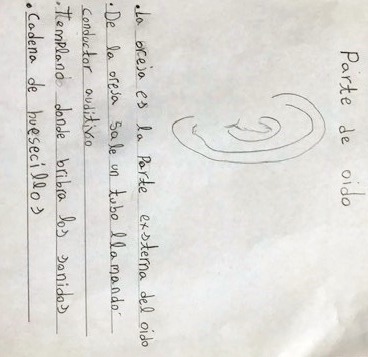 Parte de oido
.La oreja es la Parte exsterna del oido
.De la oresa sale un tubo llamando
conductor auditivo
.Ttemplano donde bribra los sonidos
.Cadena de huesecillos